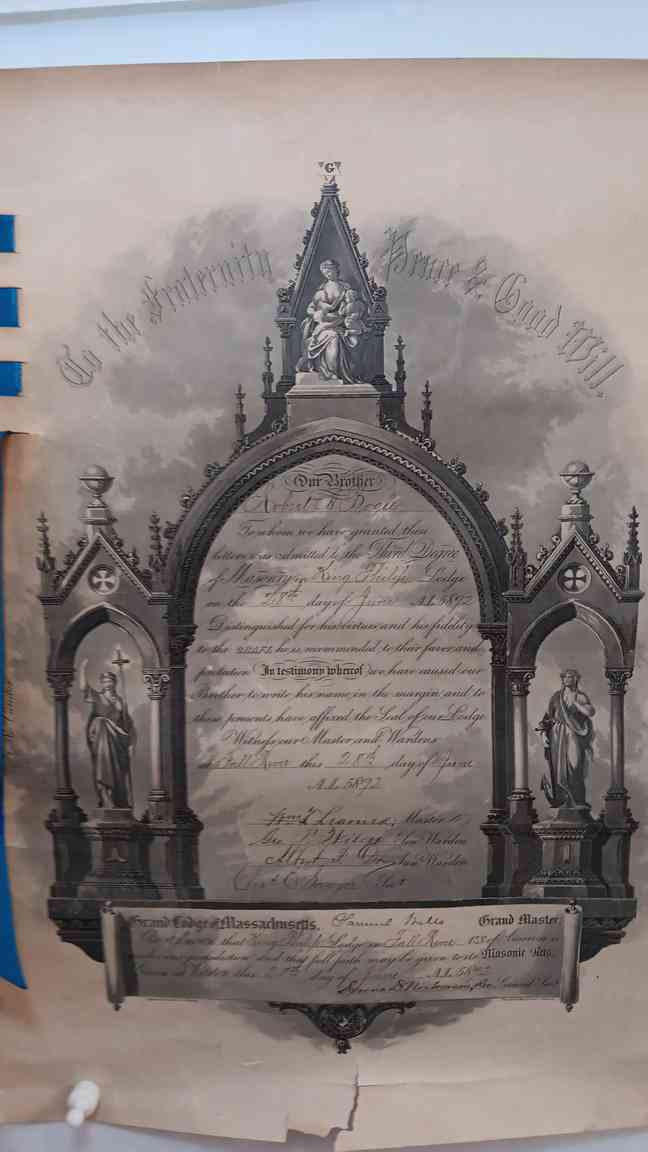 G
To the Fraternity Peace & Good Will.
Our Brother
Robert
To whom we have granted these
letters was admitted to the Third Degree
of Masonry in King Philip Lodge
on the 28th day of June A.L. 5892
Distinguished for his virtues and his fidelity
to the CRAFT, he is recommended to their favor and
protection In testimony whereof we have caused our
Brother to write his name in the margin and to
these presents have affixed the Seal of our Lodge
Witness our Master and Wardens
at Fall River this 28th day of June
A.L. 5892
Wm Learned, Master
Geo Sen. Warden
Albert Jun. Warden
Chas C Sec'y
Grand Lodge of Massachusetts, Samuel Wells Grand Master
Be it known that King Philip Lodge in Fall River is of
under our jurisdiction and that full faith may be given to its Masonic Acts.
Given at Boston this 28th day of June A.L. 5892
Sereno D. Nickerson, Rec. Grand Sec'y